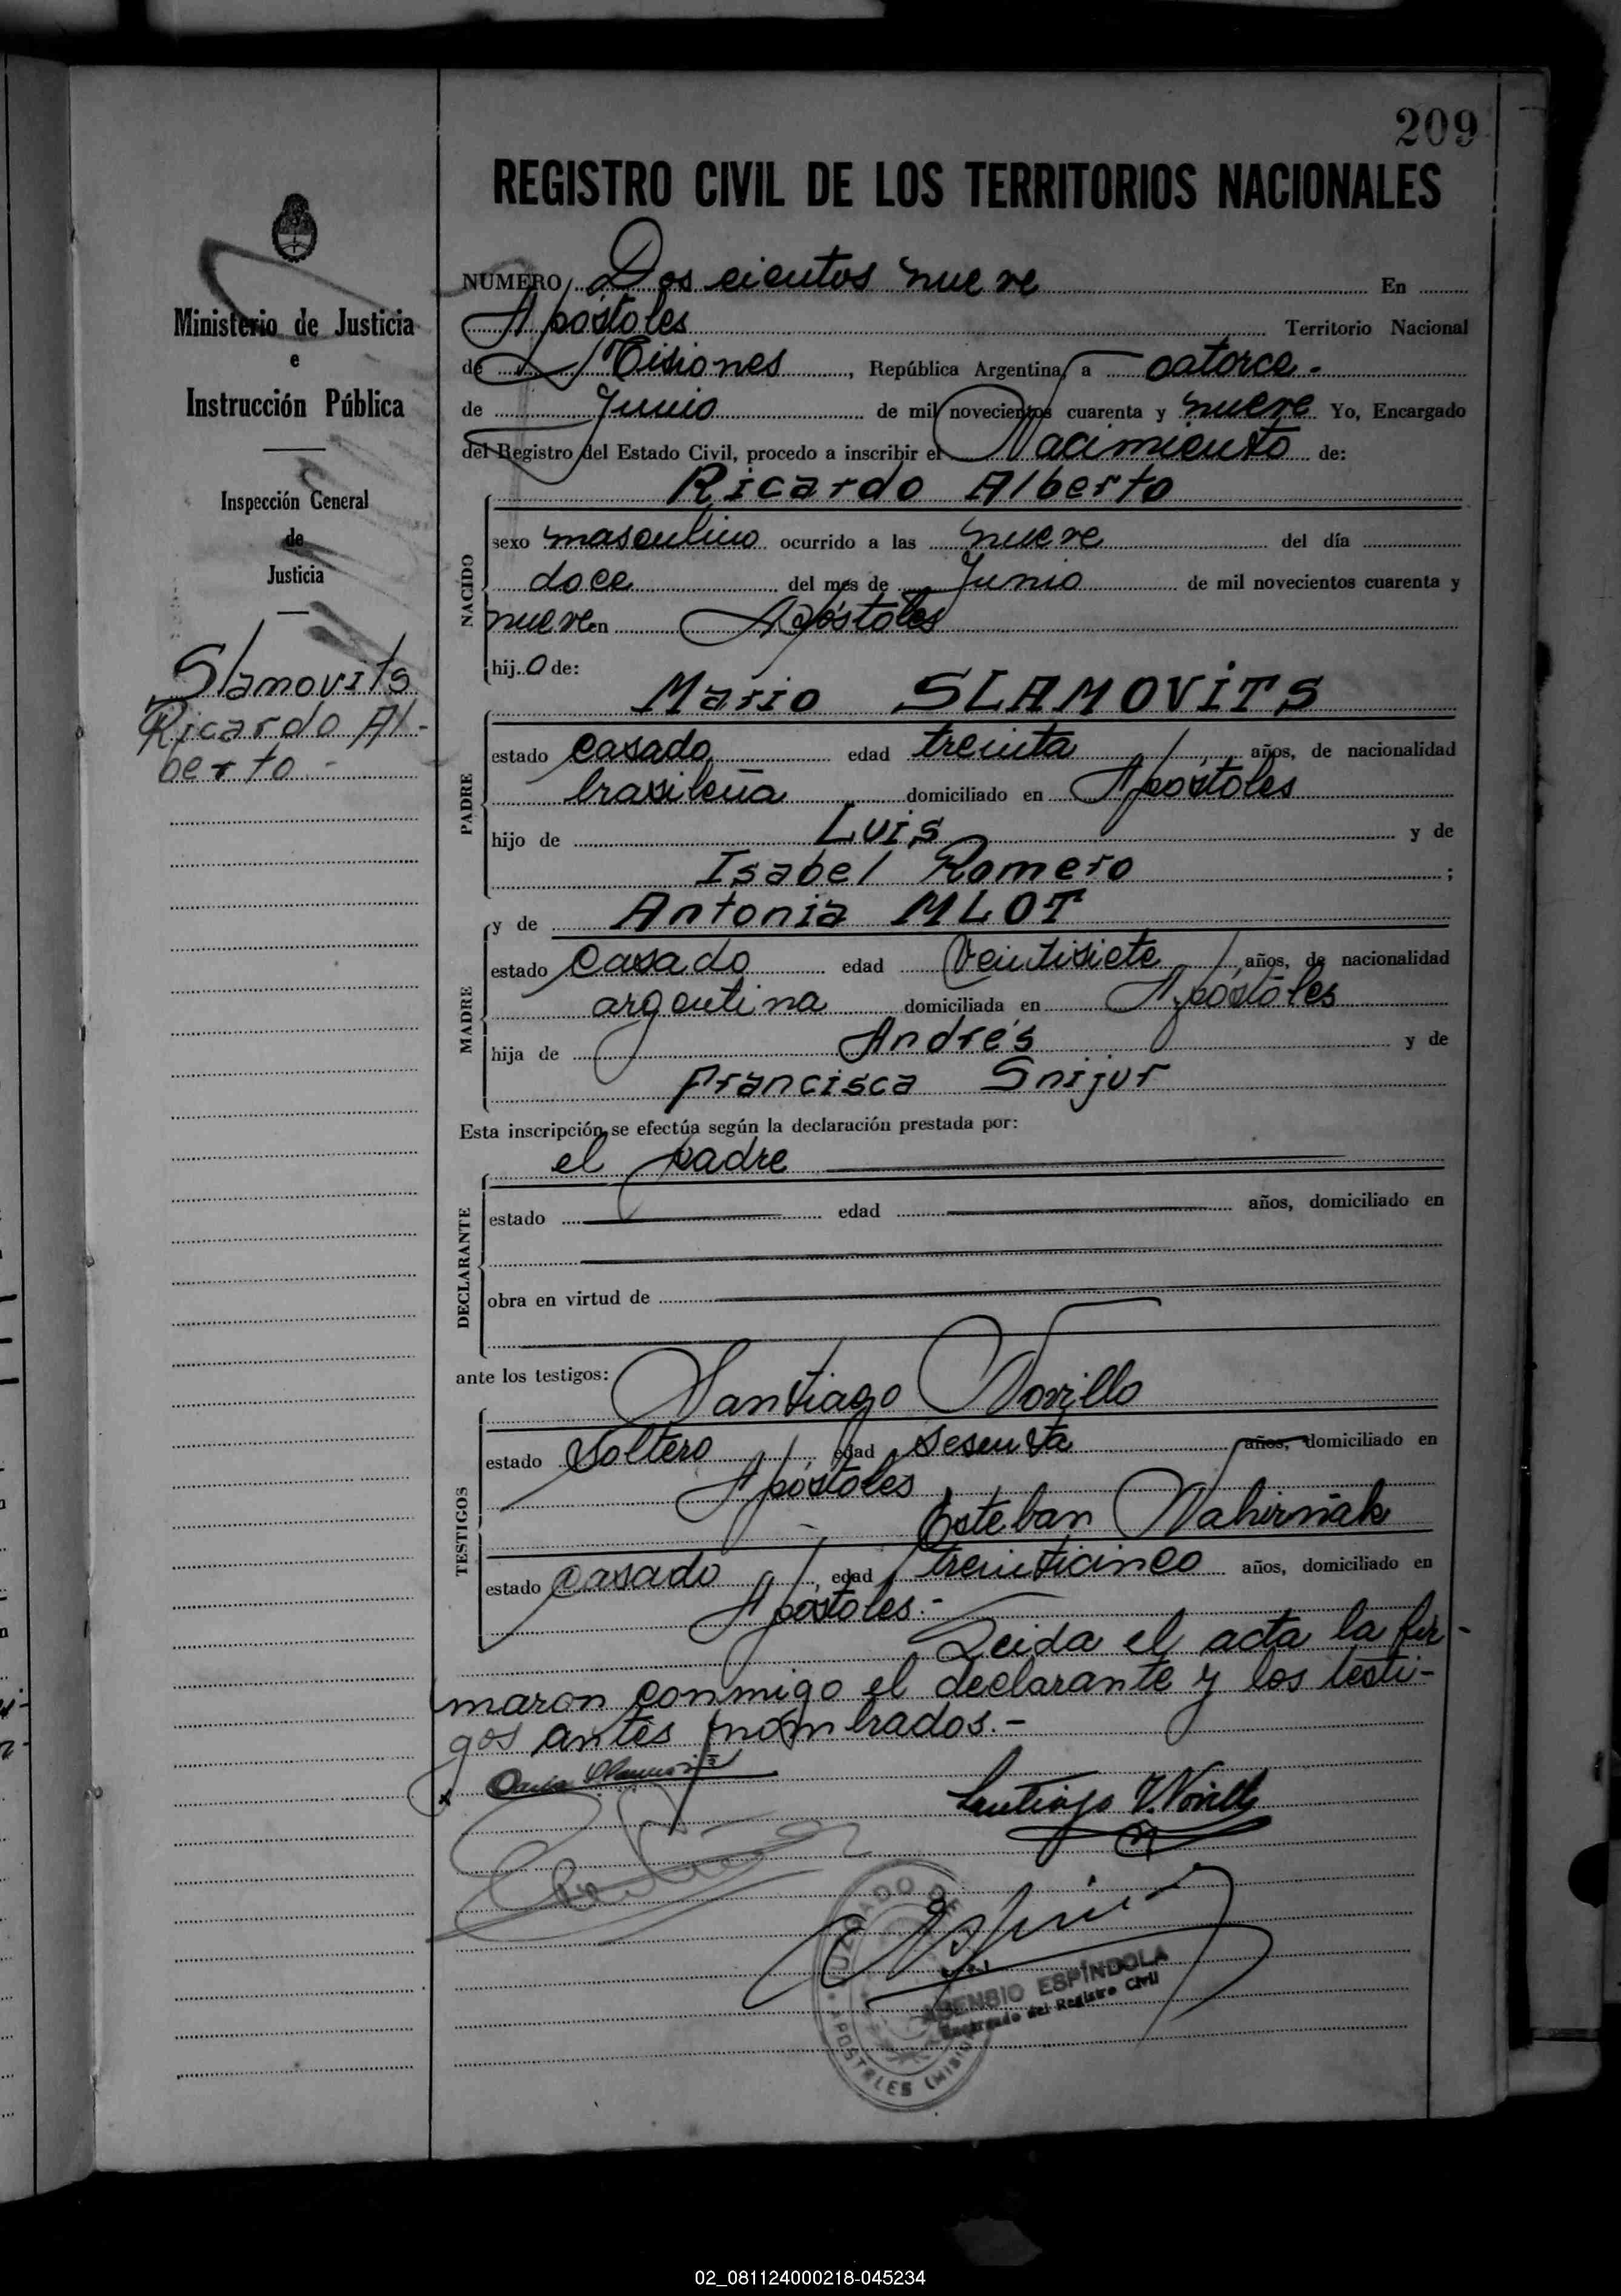 209
REGISTRO CIVIL DE LOS TERRITORIOS NACIONALES
Ministerio de Justicia
e
Instrucción Pública
Inspección General
de
Justicia
Slamovits
Ricardo Al-
berto -
NUMERO Dos cientos nueve En
Apóstoles Territorio Nacional
de Misiones, República Argentina, a catorce.-
de Junio de mil novecientos cuarenta y nueve Yo, Encargado
del Registro del Estado Civil, procedo a inscribir el Nacimiento de:
Ricardo Alberto
NACIDO
sexo masculino ocurrido a las nueve del día
doce del mes de Junio de mil novecientos cuarenta y
nueve en Apóstoles
hijo de:
Mario SLAMOVITS
PADRE
estado casado edad treinta años, de nacionalidad
brasileña domiciliado en Apóstoles
hijo de Luis y de
Isabel Romero ;
y de Antonia MLOT
MADRE
estado casado edad veintisiete años, de nacionalidad
argentina domiciliada en Apóstoles
hija de Andrés y de
Francisca Snijur
Esta inscripción se efectúa según la declaración prestada por:
el padre
DECLARANTE
estado edad años, domiciliado en
obra en virtud de
ante los testigos: Santiago Novillo
TESTIGOS
estado Soltero edad sesenta años, domiciliado en
Apóstoles
Esteban Nahirñak
estado casado, edad treinticinco años, domiciliado en
Apóstoles.-
Leida el acta la fir-
maron conmigo el declarante y los testi-
gos antes nombrados.-
Santiago V. Novillo
JUZGADO DE
APOSTOLES
ASENSIO ESPÍNDOLA
Encargado del Registro Civil
02_081124000218-045234